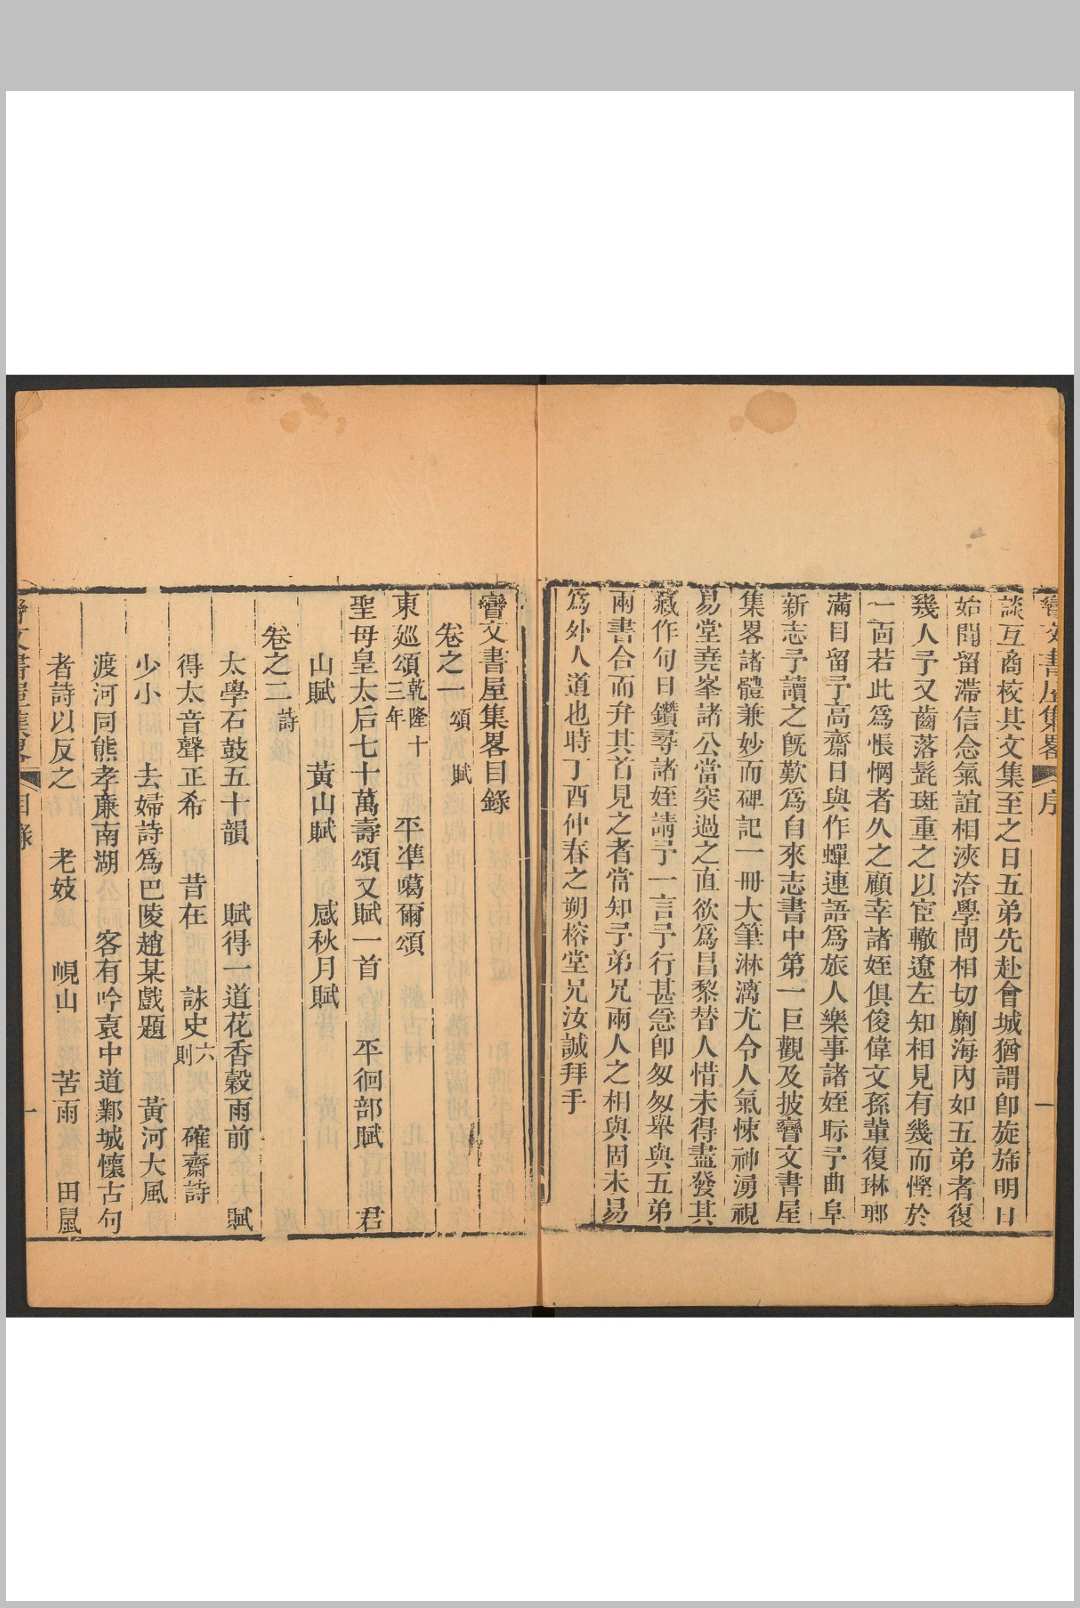 談互商校其文集至之日五弟先赴會城猶謂卽旋斾明日
始閱留滯信念氣誼相浹洽學問相切劘海內如五弟者復
幾人予又齒落髭斑重之以宦轍遼左知相見有幾而慳於
一面若此爲悵惘者久之顧幸諸姪俱俊偉文孫輩復琳瑯
滿目留予高齋日與作蟬連語爲旅人樂事諸姪眎予曲阜
新志予讀之旣歎爲自來志書中第一巨觀及披響文書屋
集畧諸體兼妙而碑記一冊大筆淋漓尤令人氣悚神湧視
易堂堯峯諸公當突過之直欲爲昌黎替人惜未得盡發其
藏作句日鑽尋諸姪請予一言予行甚急卽匆匆舉與五弟
兩書合而弁其首見之者當知予弟兄兩人之相與固未易
爲外人道也時丁酉仲春之朔榕堂兄汝誠拜手
書屋集畧 序 一
文書屋集畧目錄
卷之一 頌 賦
東巡頌 乾隆十三年 平準噶爾頌
聖母皇太后七十萬壽頌又賦一首 平徊部賦 君
山賦 黃山賦 感秋月賦
卷之二 詩
太學石鼓五十韻 賦得一道花香穀雨前 賦
得太音聲正希 昔在 詠史 六則 確齋詩
少小 去婦詩爲巴陵趙某戲題 黃河大風
渡河同熊孝亷南湖 客有吟袁中道鄴城懷古句
者詩以反之 老妓 峴山 苦雨 田鼠
文書屋集畧 目錄 一